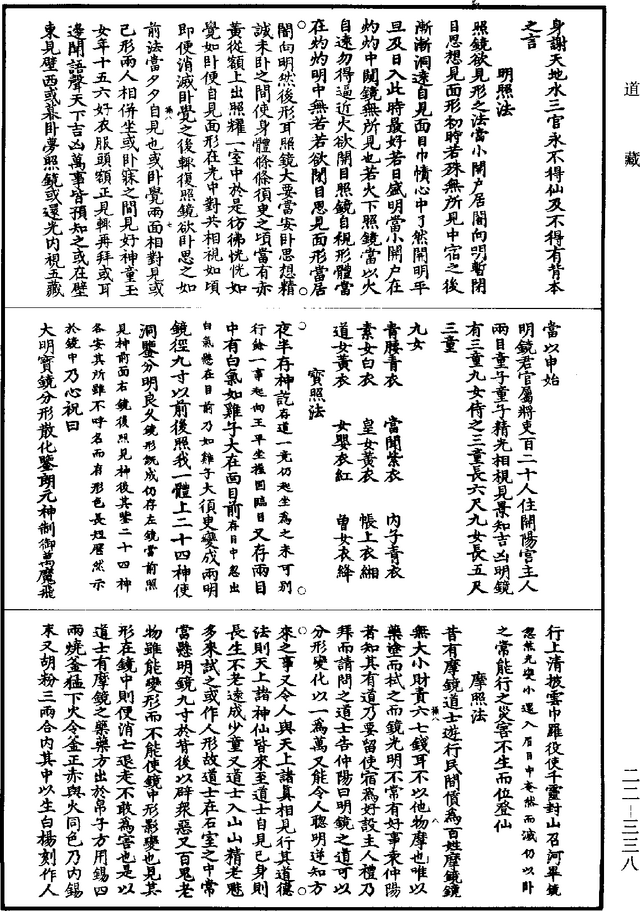 道藏
身謝天地水三官永不得仙及不得有背本
之言
明照法
照鏡欲見形之法當小開户居闇向明暫閉
目思想見面形初時若殊無所見中宿之後
漸漸洞達自見面目巾幘心中了然開明平
旦及日入此時最好若日盛明當小開户在
灼灼中闚鏡無所見也若火下照鏡當以火
自遠勿得逼近火欲開目照鏡自視形體當
在灼灼明中無若若欲閉目思見面形當居
闇向明然後形耳照鏡大要當安卧思想精
誠未卧之間使身體條條須臾之頃當有赤
黄從額上出照耀一室中於是彷彿恍恍如
覺如卧便自見面形在光中對共相視如頃
即便消滅卧覺之後輒復照鏡欲卧思之如
前法當夕夕自見也或卧覺兩面相對見或
己形兩人相併坐或卧寐之間見好神童玉
女年十五六好衣服頭額正見輒再拜或耳
邊聞語聲天下吉凶萬事皆預知之或在壁
東見壁西或暮卧夢照鏡或還光内視五藏
當以申始
明鏡君官屬將吏百二十人住開陽宫主人
兩目童子童子精光相視見景知吉凶明鏡
有三童九女侍之三童長六尺九女長五尺
三童
九女
青腰青衣 當聞紫衣 内子青衣
素女白衣 皇女黄衣 帳上衣緗
道女黄衣 女嬰衣紅 曾女衣絳
寶照法
夜半存神訖存道一竟仍起坐為之未可别
行餘一事起向王平坐握固臨目又存兩目
中有白氣如雞子大在面目前存目中忽出
白氣懸在目前乃如雞子大須臾變成兩明
鏡徑九寸以前後照我一體上二十四神使
洞鑒分明良久鏡形既成仍存左鏡當前照
見神前面右鏡後照見神後其鑒二十四神
各安其所雖不呼名而有形色長短歷然示
於鏡中乃心祝曰
大明寶鏡分形散化鑒朗元神制御萬魔飛
行上清披雲巾羅役使千靈封山召河畢鏡
忽然光變小還入眉目中奄然而滅仍以卧
之常能行之災害不生而位登仙
摩照法
昔有摩鏡道士遊行民間賃為百姓摩鏡鏡
無大小財責六七錢耳不以他物摩也唯以
藥塗而拭之而鏡光明不常有好事秉仲陽
者知其有道乃要留使宿為好設主人禮乃
拜而請問之道士告仲陽曰明鏡之道可以
分形變化以一為萬又能令人聰明逆知方
來之事又令人與天上諸真相見行其道德
法則天上諸神仙皆來至道士自見已身則
長生不老遠成少童又道士入山山精老魅
多來試之或作人形故道士在石室之中常
當懸明鏡九寸於背後以辟衆惡又百鬼老
物雖能變形而不能使鏡中形影變也見其
形在鏡中則便消亡退走不敢為害也是以
道士有摩鏡之藥藥方出於帛子方用錫四
兩燒釜猛下火令釜正赤與火同色乃内錫
末又胡粉三兩合内其中以生白楊刻作人
二二—三三八